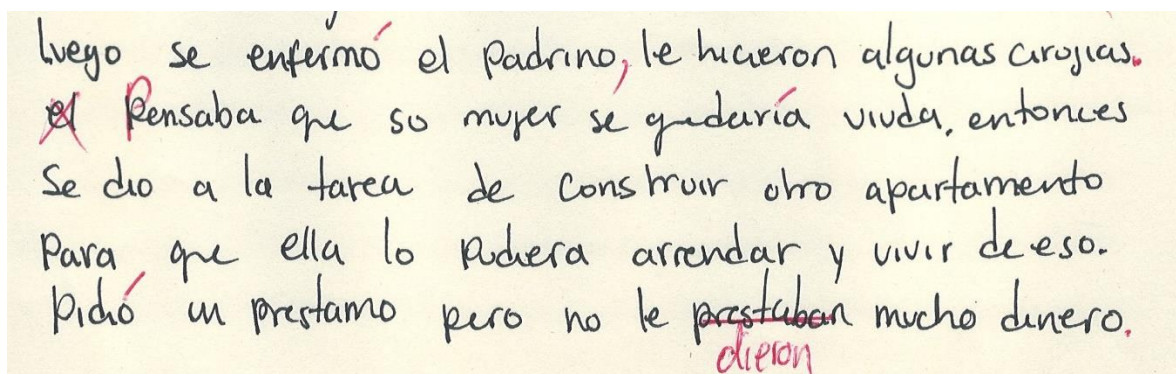 luego se enfermó el padrino, le hicieron algunas cirojias.
el Pensaba que so mujer se quedaría viuda, entonces
se dio a la tarea de construir otro apartamento
para que ella lo pudiera arrendar y vivir de eso.
Pidió un prestamo pero no le prestaban mucho dinero.
dieron